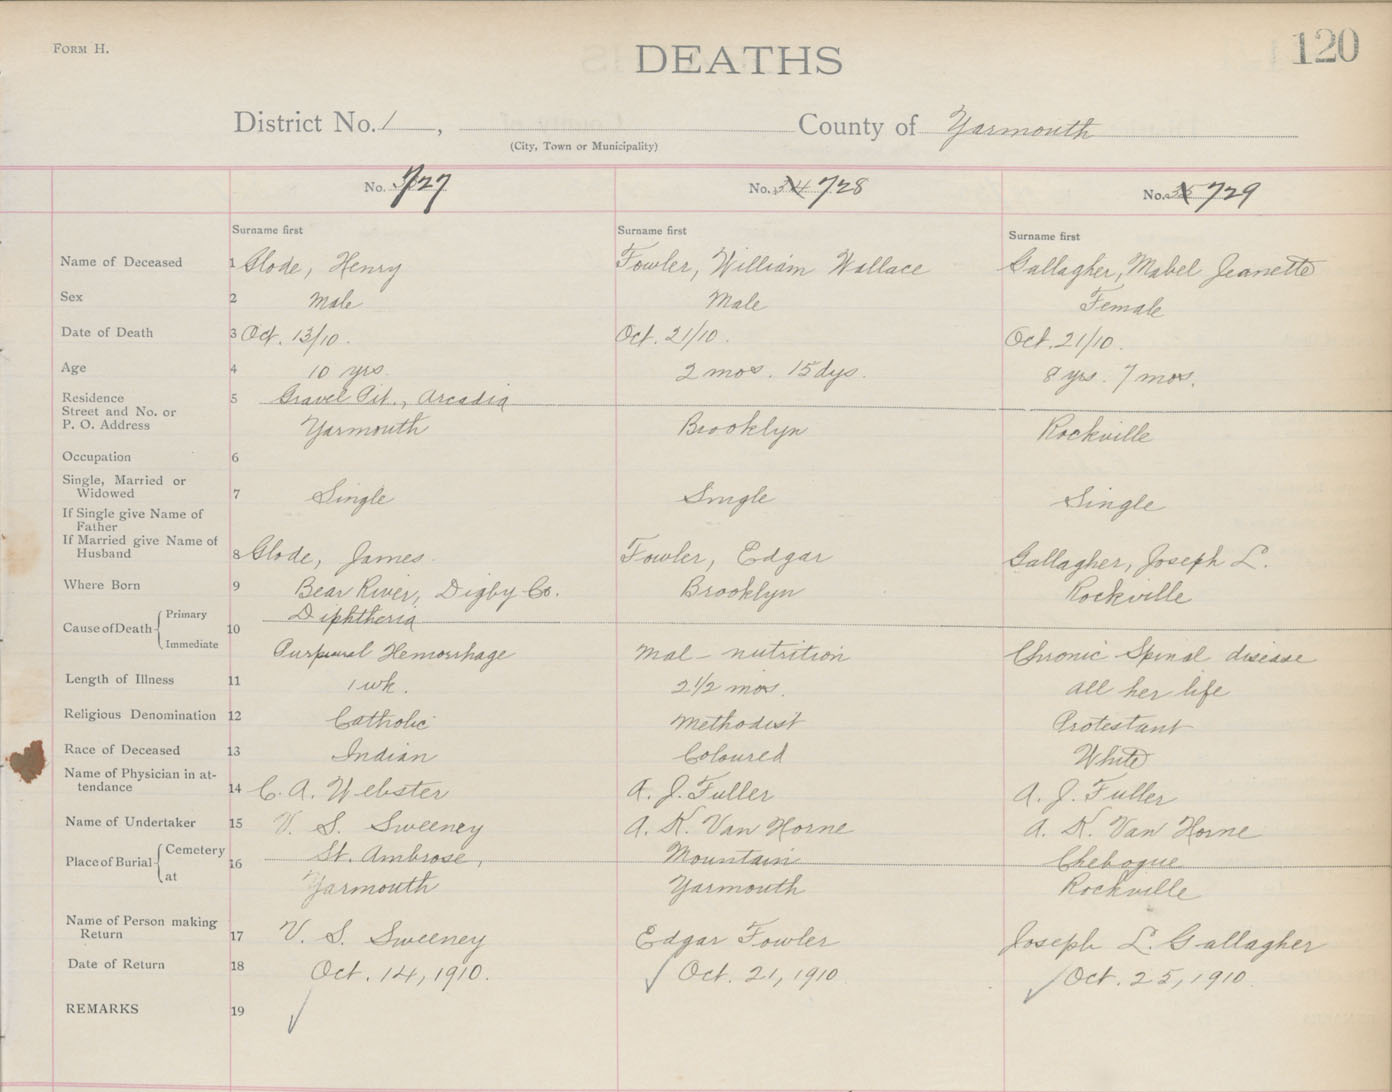 FORM H.
DEATHS
120
District No. 1, County of Yarmouth
(City, Town or Municipality)
No. 727 No. 34 728 No. 35 729
Surname first Surname first Surname first
Name of Deceased 1 Glode, Henry Fowler, William Wallace Gallagher, Mabel Jeanette
Sex 2 Male Male Female
Date of Death 3 Oct. 13/10. Oct. 21/10. Oct. 21/10.
Age 4 10 yrs. 2 mos. 15 dys. 8 yrs. 7 mos.
Residence 5 Gravel Pit., Arcadia
Street and No. or
P. O. Address Yarmouth Brooklyn Rockville
Occupation 6
Single, Married or
Widowed 7 Single Single Single
If Single give Name of
Father
If Married give Name of
Husband 8 Glode, James. Fowler, Edgar Gallagher, Joseph L.
Where Born 9 Bear River, Digby Co. Brooklyn Rockville
Cause of Death Primary 10 Diphtheria
Immediate Hemorrhage Mal-nutrition Chronic Spinal disease
Length of Illness 11 1 wk. 2 1/2 mos. all her life
Religious Denomination 12 Catholic Methodist Protestant
Race of Deceased 13 Indian Coloured White
Name of Physician in at-
tendance 14 C. A. Webster A. J. Fuller A. J. Fuller
Name of Undertaker 15 V. S. Sweeney A. K. Van Horne A. K. Van Horne
Place of Burial Cemetery 16 St. Ambrose, Mountain Chebogue
at Yarmouth Yarmouth Rockville
Name of Person making
Return 17 V. S. Sweeney Edgar Fowler Joseph L. Gallagher
Date of Return 18 Oct. 14, 1910. Oct. 21, 1910 Oct. 25, 1910.
REMARKS 19